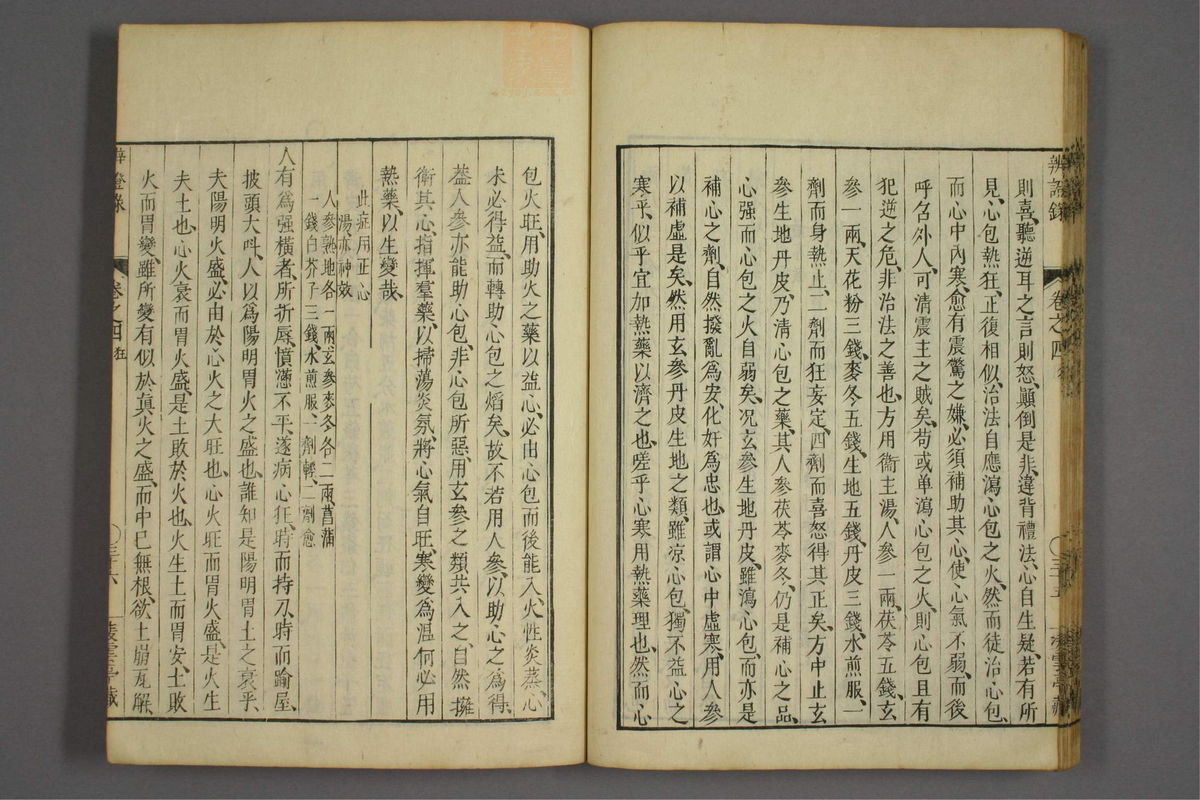 辨證錄 卷之四 狂 三十五
則喜、聽逆耳之言則怒、顚倒是非、違背禮法、心自生疑、若有所
見、心包熱狂、正復相似、治法自應瀉心包之火、然而徒治心包、
而心中內寒、愈有震驚之嫌、必須補助其心、使心氣不弱、而後
呼召外人、可清震主之賊矣、苟或单瀉心包之火、則心包且有
犯逆之危、非治法之善也、方用衞主湯、人參一兩、茯苓五錢、玄
參一兩、天花粉三錢、麥冬五錢、生地五錢、丹皮三錢、水煎服、一
劑而身熱止、二劑而狂妄定、四劑而喜怒得其正矣、方中止玄
參生地丹皮、乃清心包之藥、其人參茯苓麥冬、仍是補心之品、
心强而心包之火自弱矣、况玄參生地丹皮、雖瀉心包、而亦是
補心之劑、自然撥亂爲安、化奸爲忠也、或謂心中虛寒、用人參
以補虛是矣、然用玄參丹皮生地之類、雖凉心包、獨不益心之
寒乎、似乎宜加熱藥以濟之也、嗟乎、心寒用熱藥理也、然而心
包火旺、用助火之藥以益心、必由心包而後能入、火性炎蒸、心
未必得益、而轉助心包之熖矣、故不若用人參、以助心之爲得、
葢人參亦能助心包、非心包所惡、用玄參之類共入之、自然擁
衞其心、指揮羣藥、以掃蕩炎氛、將心氣自旺、寒變爲温、何必用
熱藥、以生變哉、
此症用正心湯亦神效
人參熟地各一兩玄參麥冬各二兩菖蒲
一錢白芥子三錢、水煎服、一劑輕、二劑愈
人有爲强横者、所折辱、憤懣不平、遂病心狂、時而持刀、時而踰屋、
披頭大呌、人以爲陽明胃火之盛也、誰知是陽明胃土之衰乎、
夫陽明火盛、必由於心火之大旺也、心火旺而胃火盛、是火生
夫土也、心火衰而胃火盛、是土敗於火也、火生土而胃安、土敗
火而胃變、雖所變有似於眞火之盛、而中已無根、欲土崩瓦解
辨證錄 卷之四 狂 三十六 菱雲亭藏